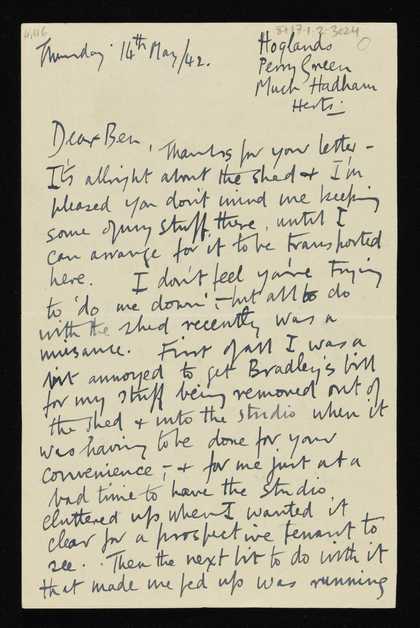 8717.1.2.3024
Thursday 14th May/42.
Hoglands
Perry Green
Much Hadham
Herts.
Dear Ben, Thanks for your letter –
It's allright about the shed & I'm
pleased you don't mind me keeping
some of my stuff there, until I
can arrange for it to be transported
here. I don't feel you're trying
to 'do me down', – but all to do
with the shed recently was a
nuisance. First of all I was a
bit annoyed to get Bradley's bill
for my stuff being removed out of
the shed & into the studio when it
was having to be done for your
convenience, – & for me just at a
bad time to have the studio
cluttered up when I wanted it
clear for a prospective tenant to
see. . Then the next bit to do with it
that made me fed up was running